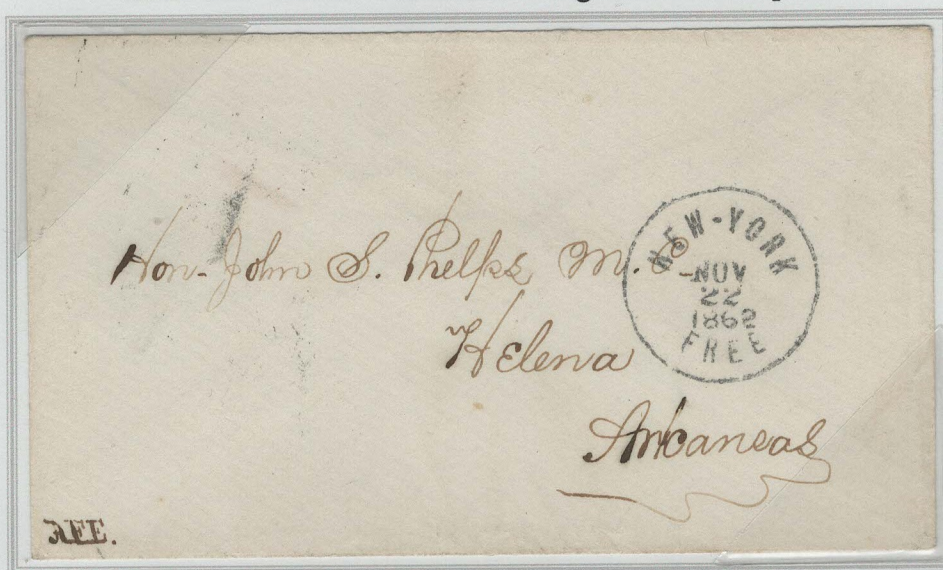 Hon- John S. Phelps, M. C
Helena
Arkansas
NEW-YORK
NOV
22
1862
FREE